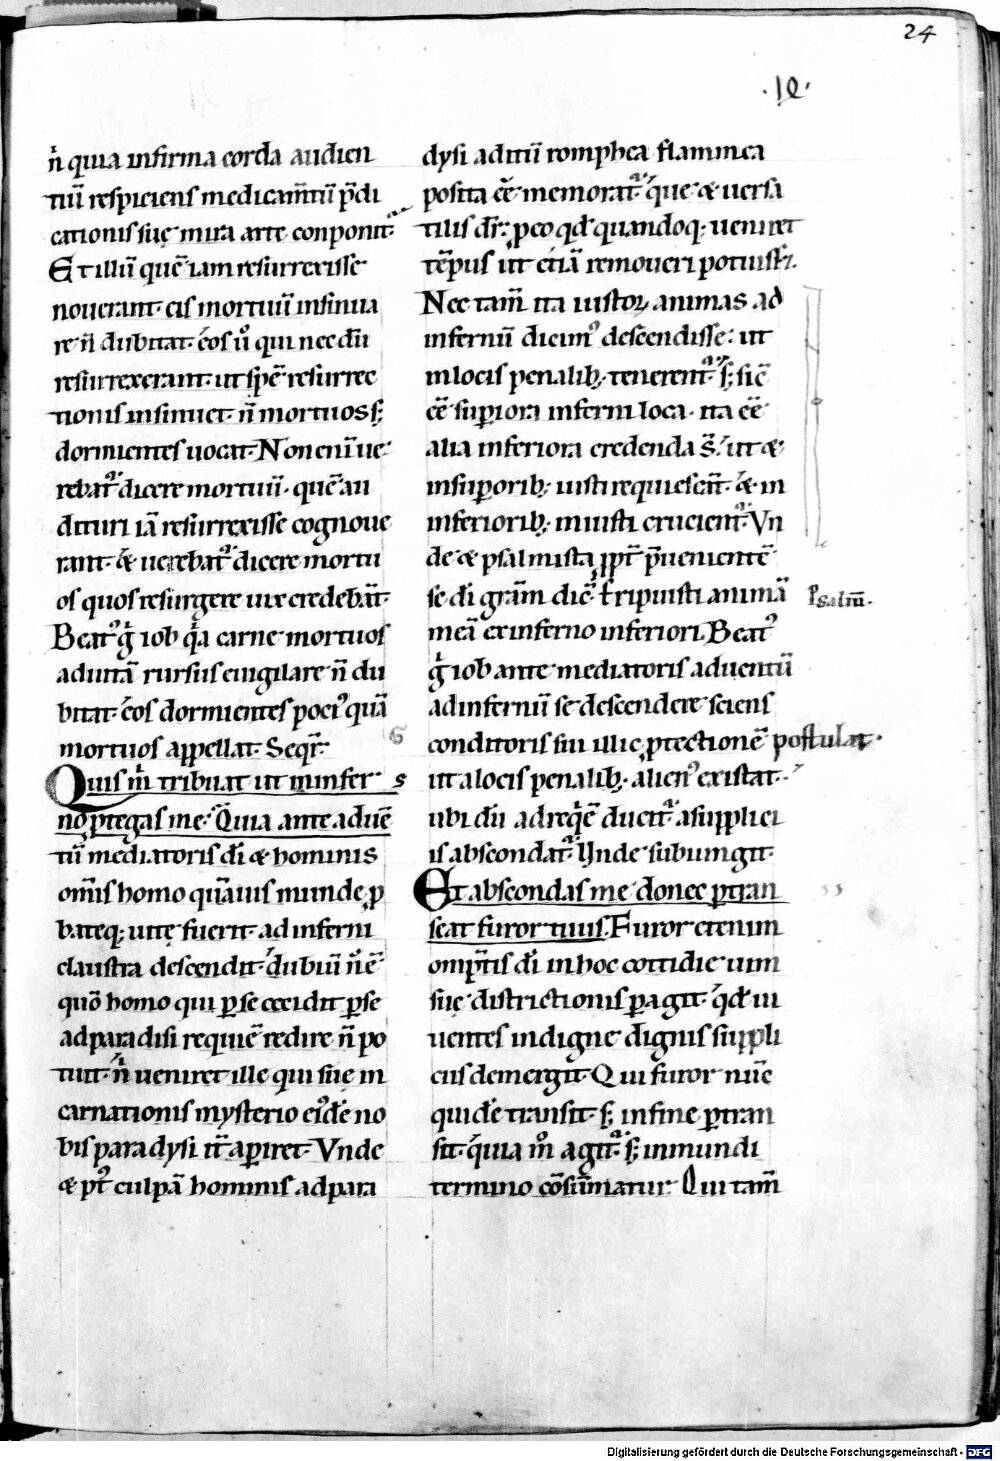 24
·10·
n̄ quia infirma corda audien
tiū respiciens medicam̄tū p̄di
cationis suę mira arte conponit.
Et illū quē iam resurrexisse
noverant eis mortuū insinua
re n̄ dubitat. eos u̾o qui nec dū
resurrexerant ut spē resurrec
tionis insinuet n̄ mortuos s;
dormientes uocat. Non enī ue
rebat᷑ dicere mortuū. quē au
dituri iā resurrexisse cognoue
rant. & uerebat᷑ dicere mortu
os quos resurgere uix credebāt.
Beatꝰ gͥ iob qͥa carne mortuos
ad uitā rursus euigilare n̄ du
bitat. eos dormientes pociꝰ quā
mortuos appellat. Seqr̄. G
Quis m̄ tribuat ut in infer s
no ꝓtegas me. Quia ante aduē
tū mediatoris dī & hominis
omīs homo quāuis munde ꝓ
bateq; uitę fuerit. ad inferni
claustra descendit dubiū n̄ ē.
quō homo qui ꝑ se cecidit ꝑ se
ad paradisi requiē redire n̄ po
tuit. nͥ veniret ille qui sue in
carnationis mysterio eiꝰdē no
bis paradysi it̄ aperiret. Vnde
& pꝰt culpā hominis ad para
dysi aditū romphea flammea
posita ē̄e memorat᷑. que & uersa
tilis dr̄. ꝓ eo qd̄ quandoq; ueniret
tēpus ut etiā remoueri potuiss&.
Nec tam̄ ita iustoꝝ animas ad
infernū dicimꝰ descendisse. ut
in locis penalib; tenerent᷑. s; sic̄
ē̄e superiora inferni loca. ita ē̄e
alia inferiora credenda s̄. ut &
in suꝑiorib; iusti requiescer̄t. & in
inferiorib; iniusti cruciarent᷑. Vn
de & psalmista ꝓpt̄ p̄uenientē
se dī grām dic̄. Eripuisti animā Psalm̄.
meā ex inferno inferiori. Beatꝰ
gͥ iob ante mediatoris aduentū
ad infernū se descendere sciens
conditoris sui illic ꝓtectionē postulat.
ut a locis penalib; alienꝰ existat.
ubi dū ad requiē ducit᷑ a supplici
is abscondat᷑. Unde subiungit.
Et abscondas me donec ꝑtran
seat furor tuus. Furor etenim
omp̄tis dī in hoc cottidie uim
suę districtionis ꝑagit. qd̄ ui
uentes indigne dignis suppli
ciis demergit. Qui furor nunc
quidē transit. s; in fine ꝑtran
sit. quia m̊ agit᷑. s; in mundi
termino cōsūmatur. Qui tam̄
Digitalisierung gefördert durch die Deutsche Forschungsgemeinschaft - DFG